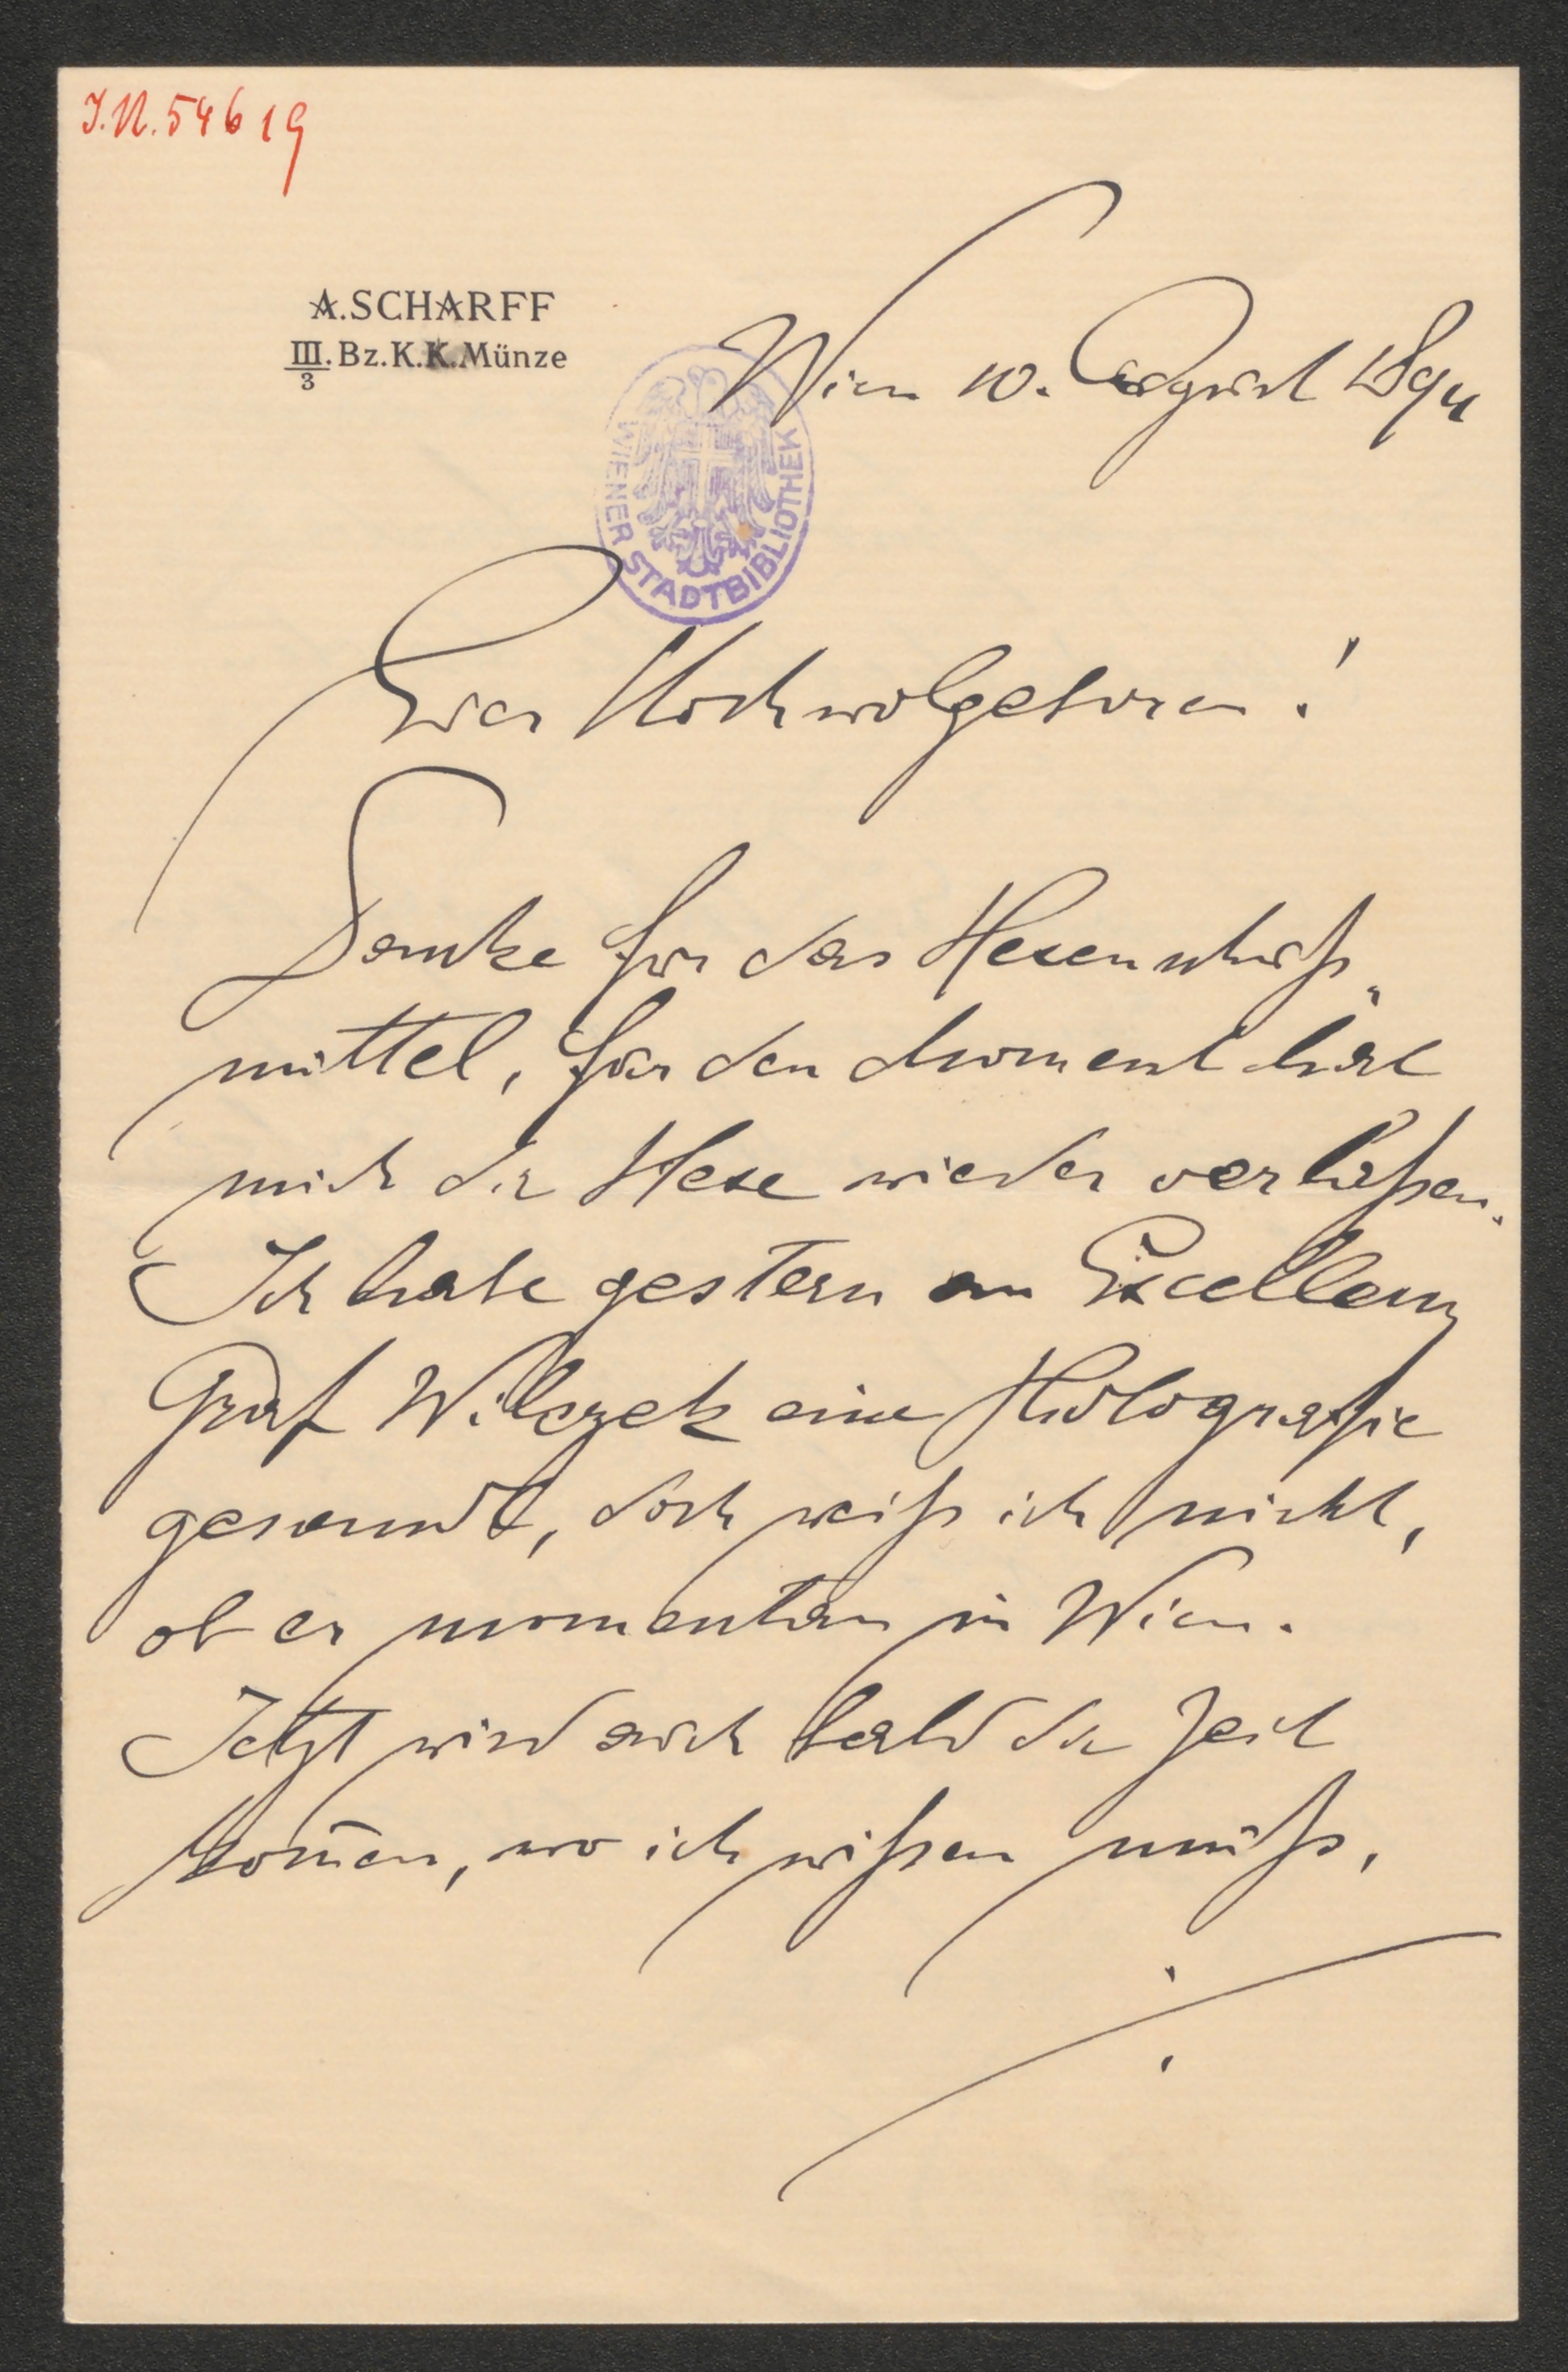 I.N. 54619
A. SCHARFF
III. Bz. K. K. Münze
3
Wien 10. August 1894
WIENER STADTBIBLIOTHEK
Euer Hochwolgeboren!
Danke für das Hexenschuß„
mittel, für den Moment hat
mich die Hexe wieder verlaßen.
Ich habe gestern an Excellenz
Graf Wilczek eine Heliografie
gesandt, doch weiß ich nicht,
ob er momentan in Wien.
Jetzt wird auch bald die Zeit
kom̄en, wo ich wißen muß,